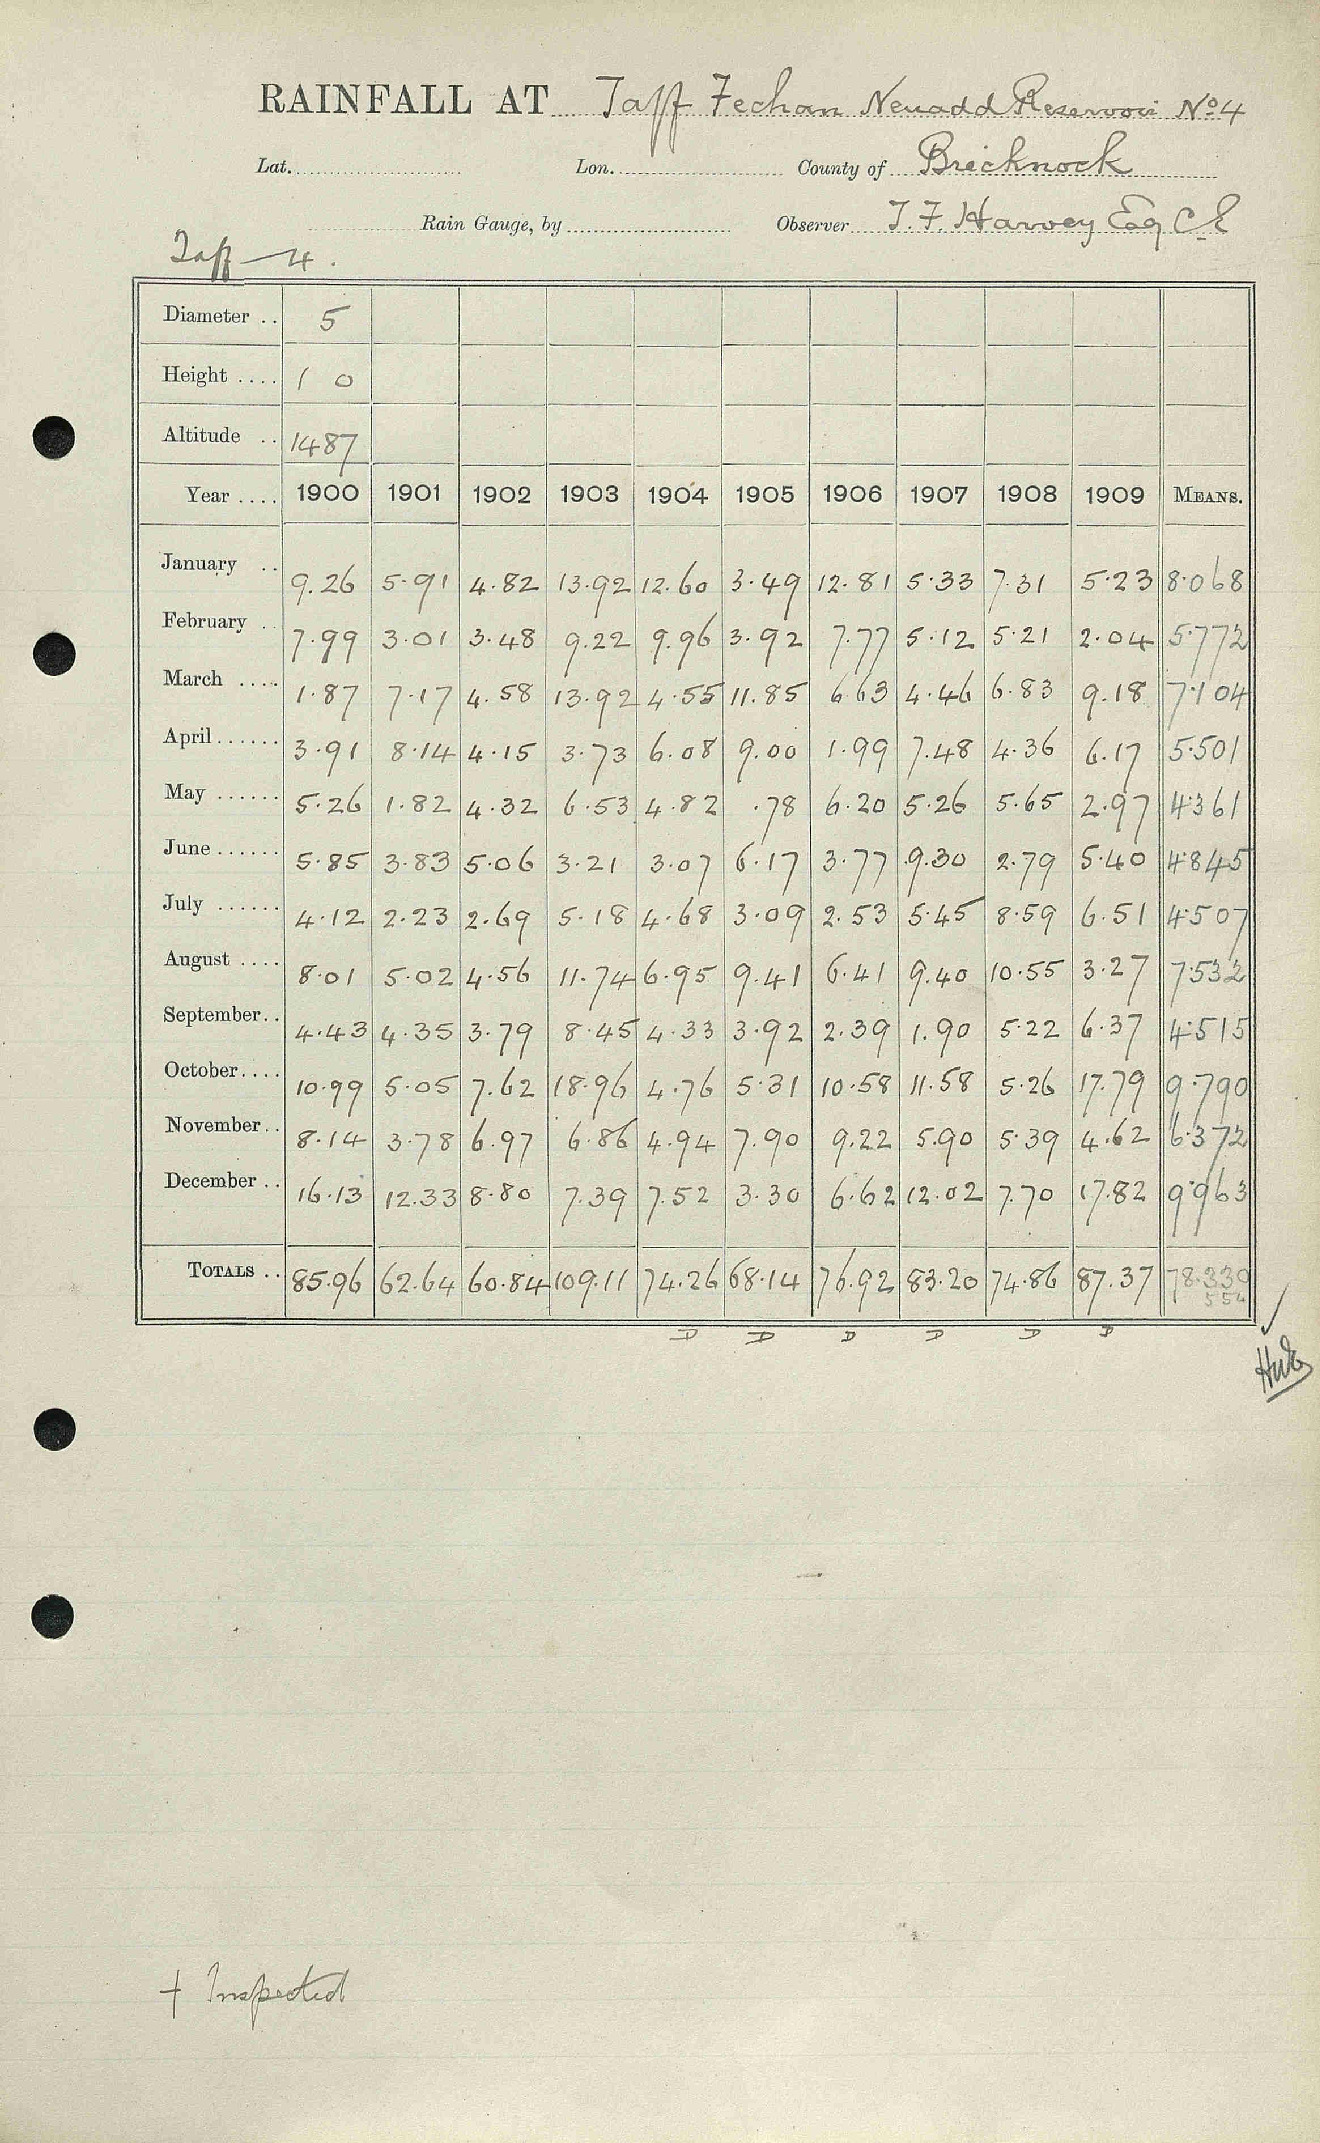 RAINFALL AT Taff Fechan Neuadd Reservoir No 4
Lat. Lon. County of Brecknock
Rain Gauge, by Observer T. F. Harvey Esq C E
Taff — 4.
Diameter .. 5
Height .... 1 0
Altitude .. 1487
Year .... 1900 1901 1902 1903 1904 1905 1906 1907 1908 1909 MEANS.
January .. 9.26 5.91 4.82 13.92 12.60 3.49 12.81 5.33 7.31 5.23 8.068
February .. 7.99 3.01 3.48 9.22 9.96 3.92 7.77 5.12 5.21 2.04 5.772
March .... 1.87 7.17 4.58 13.92 4.55 11.85 6.63 4.46 6.83 9.18 7.104
April...... 3.91 8.14 4.15 3.73 6.08 9.00 1.99 7.48 4.36 6.17 5.501
May ...... 5.26 1.82 4.32 6.53 4.82 .78 6.20 5.26 5.65 2.97 4.361
June...... 5.85 3.83 5.06 3.21 3.07 6.17 3.77 9.30 2.79 5.40 4.845
July ...... 4.12 2.23 2.69 5.18 4.68 3.09 2.53 5.45 8.59 6.51 4.507
August .... 8.01 5.02 4.56 11.74 6.95 9.41 6.41 9.40 10.55 3.27 7.532
September.. 4.43 4.35 3.79 8.45 4.33 3.92 2.39 1.90 5.22 6.37 4.515
October.... 10.99 5.05 7.62 18.96 4.76 5.31 10.58 11.58 5.26 17.79 9.790
November.. 8.14 3.78 6.97 6.86 4.94 7.90 9.22 5.90 5.39 4.62 6.372
December .. 16.13 12.33 8.80 7.39 7.52 3.30 6.62 12.02 7.70 17.82 9.963
TOTALS .. 85.96 62.64 60.84 109.11 74.26 68.14 76.92 83.20 74.86 87.37 78.330
D D D D D D
+ Inspected